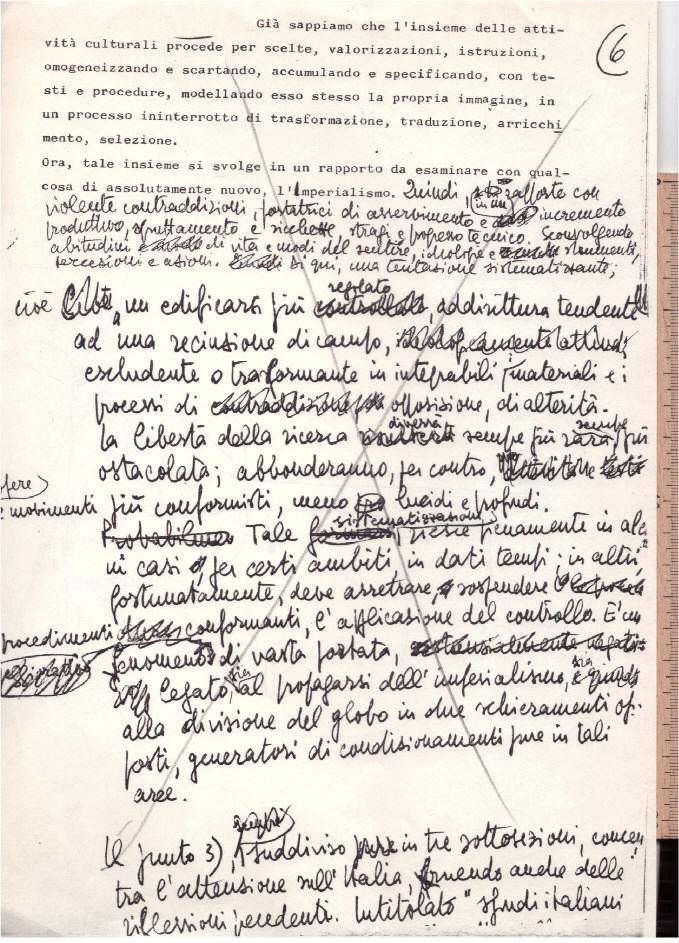 (6
Già sappiamo che l'insieme delle atti-
vità culturali procede per scelte, valorizzazioni, istruzioni,
omogeneizzando e scartando, accumulando e specificando, con te-
sti e procedure, modellando esso stesso la propria immagine, in
un processo ininterrotto di trasformazione, traduzione, arricchi
mento, selezione.
Ora, tale insieme si svolge in un rapporto da esaminare con qual-
cosa di assolutamente nuovo, l'Imperialismo. Quindi, in un rapporto con
violente contraddizioni, portatrici di asservimento e incremento
produttivo, sfruttamento e ricchezze, stragi e progresso tecnico. Sconvolgendo
abitudini di vita e modi del sentire, ideologie e strumenti,
successioni e azioni. Di qui, una tentazione sistematizzante;
cioè un edificarsi più regolato, addirittura tendente
ad una recinzione di campo,
escludente o trasformante in integrabili i materiali e i
processi di opposizione, di alterità.
La libertà della ricerca diverrà sempre più rara, sempre più
ostacolata; abbonderanno, per contro, opere
e movimenti più conformisti, meno lucidi e profondi.
Tale sistematizzazione riesce pienamente in alcu
ni casi, per certi ambiti, in dati tempi; in altri,
fortunatamente, deve arretrare, sospendere
procedimenti conformanti, l'applicazione del controllo. È un
fenomeno di vasta portata,
legato, sia al propagarsi dell'imperialismo, sia
alla divisione del globo in due schieramenti op-
posti, generatori di condizionamenti pure in tali
aree.
Il punto 3), suddiviso pure in tre sottosezioni, concen
tra l'attenzione sull'Italia, fruendo anche delle
riflessioni precedenti. Intitolato "Studi italiani